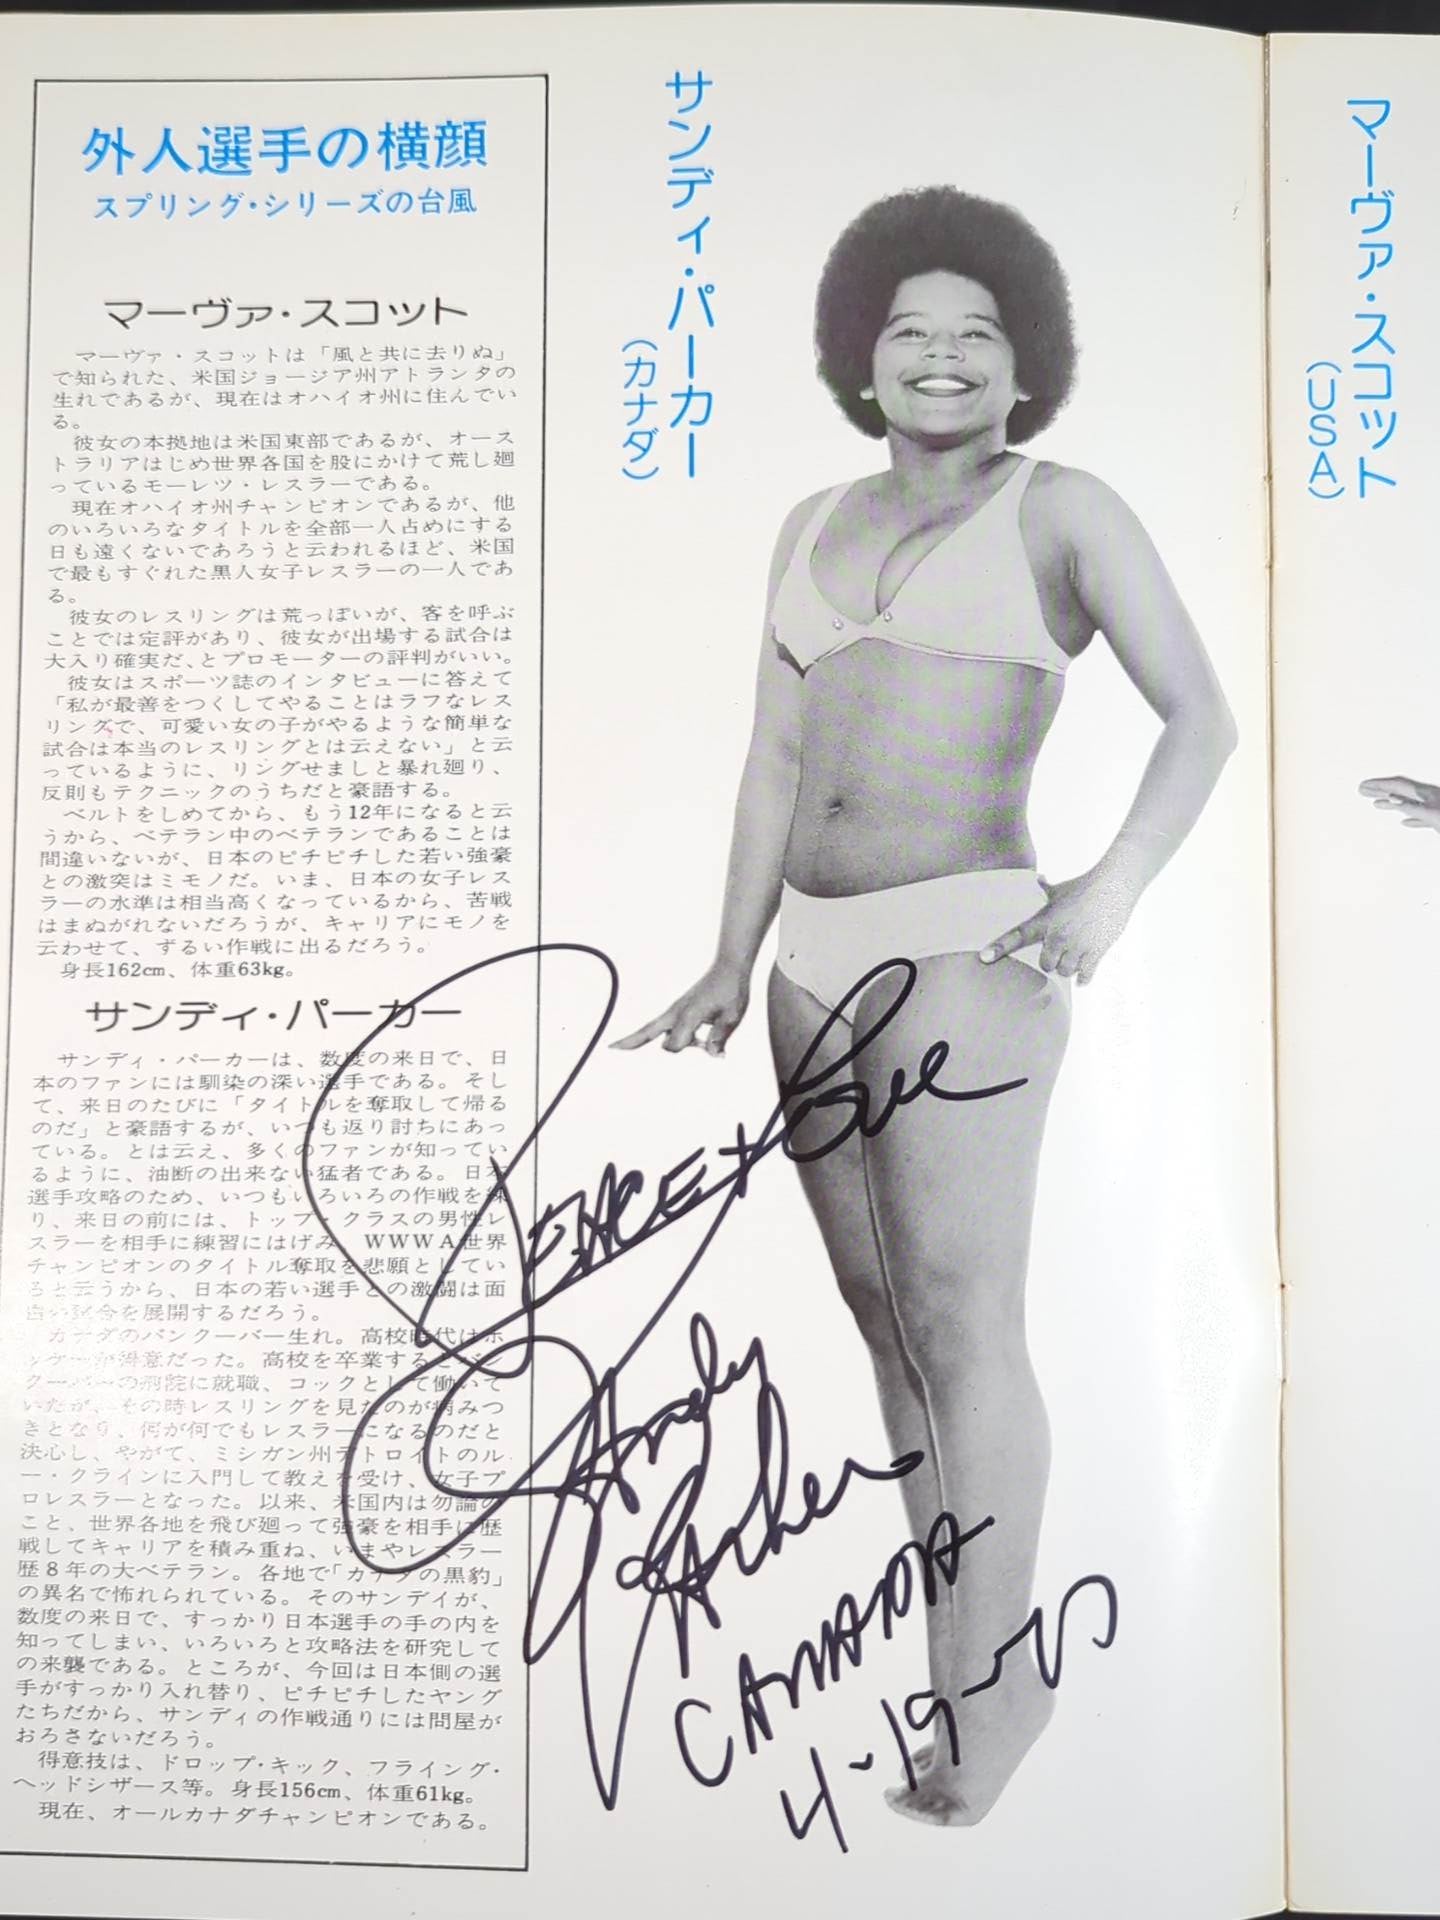 外人選手の横顔
スプリング・シリーズの台風
マーヴァ・スコット
マーヴァ・スコットは「風と共に去りぬ」
で知られた、米国ジョージア州アトランタの
生れであるが、現在はオハイオ州に住んでい
る。
彼女の本拠地は米国東部であるが、オース
トラリアはじめ世界各国を股にかけて荒し廻
っているモーレツ・レスラーである。
現在オハイオ州チャンピオンであるが、他
のいろいろなタイトルを全部一人占めにする
日も遠くないであろうと云われるほど、米国
で最もすぐれた黒人女子レスラーの一人であ
る。
彼女のレスリングは荒っぽいが、客を呼ぶ
ことでは定評があり、彼女が出場する試合は
大入り確実だ、とプロモーターの評判がいい。
彼女はスポーツ誌のインタビューに答えて
「私が最善をつくしてやることはラフなレス
リングで、可愛い女の子がやるような簡単な
試合は本当のレスリングとは云えない」と云
っているように、リングせましと暴れ廻り、
反則もテクニックのうちだと豪語する。
ベルトをしめてから、もう12年になると云
うから、ベテラン中のベテランであることは
間違いないが、日本のピチピチした若い強豪
との激突はミモノだ。いま、日本の女子レス
ラーの水準は相当高くなっているから、苦戦
はまぬがれないだろうが、キャリアにモノを
云わせて、ずるい作戦に出るだろう。
身長162cm、体重63kg。
サンディ・パーカー
サンディ・パーカーは、数度の来日で、日
本のファンには馴染の深い選手である。そし
て、来日のたびに「タイトルを奪取して帰る
のだ」と豪語するが、いつも返り討ちにあっ
ている。とは云え、多くのファンが知ってい
るように、油断の出来ない猛者である。日本
選手攻略のため、いつもいろいろの作戦を練
り、来日の前には、トップ・クラスの男性レ
スラーを相手に練習にはげみ、WWWA世界
チャンピオンのタイトル奪取を悲願としてい
ると云うから、日本の若い選手との激闘は面
白い試合を展開するだろう。
カナダのバンクーバー生れ。高校時代はホ
ッケーが得意だった。高校を卒業するとバン
クーバーの病院に就職、コックとして働いて
いたが、その時レスリングを見たのが病みつ
きとなり、何が何でもレスラーになるのだと
決心し、やがて、ミシガン州デトロイトのル
ー・クラインに入門して教えを受け、女子プ
ロレスラーとなった。以来、米国内は勿論の
こと、世界各地を飛び廻って強豪を相手に歴
戦してキャリアを積み重ね、いまやレスラー
歴8年の大ベテラン。各地で「カナダの黒豹」
の異名で怖れられている。そのサンデイが、
数度の来日で、すっかり日本選手の手の内を
知ってしまい、いろいろと攻略法を研究して
の来襲である。ところが、今回は日本側の選
手がすっかり入れ替り、ピチピチしたヤング
たちだから、サンディの作戦通りには問屋が
おろさないだろう。
得意技は、ドロップ・キック、フライング・
ヘッドシザース等。身長156cm、体重61kg。
現在、オールカナダチャンピオンである。
サンディ・パーカー
（カナダ）
PEACE + Love
Sandy
Parker
CANADA
4-19-
マーヴァ・スコット
（USA）